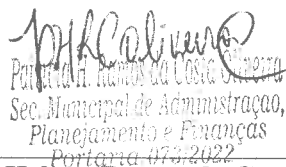 Ramos da Costa Oliveira
Sec. Municipal de Administração,
Planejamento e Finanças
Portaria 073/2022